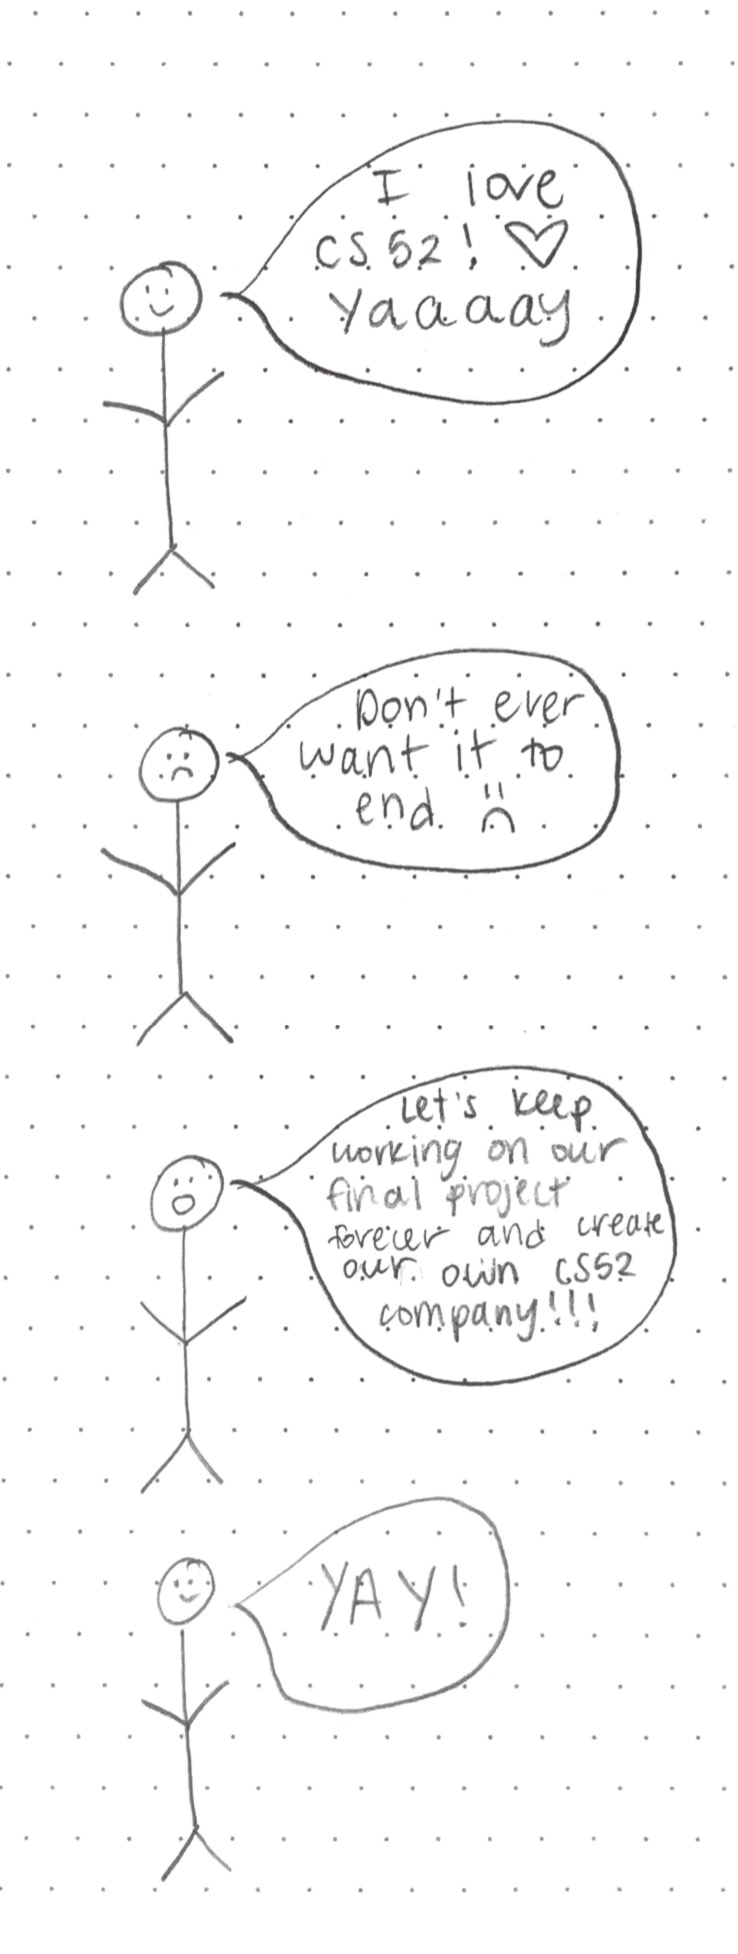 I love
CS 52! ♡
Yaaaay
Don't ever
want it to
end :(
Let's keep
working on our
final project
forever and create
our own CS52
company!!!
YAY!